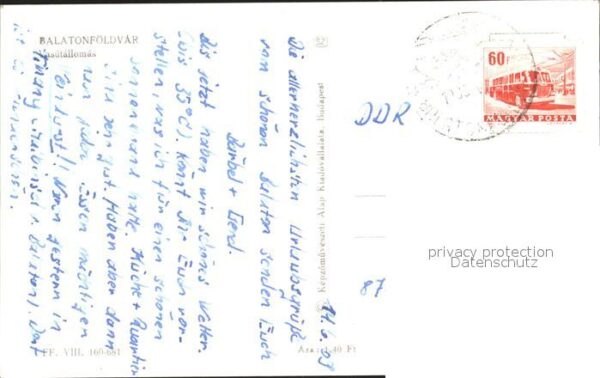 BALATONFÖLDVÁR
Vasútállomás
Die allerherzlichsten Urlaubsgrüße
vom schönen Balaton senden Euch
Bärbel + Gerd.
Bis jetzt haben wir schönes Wetter.
(bis 35°C). Könnt Ihr Euch vor-
stellen was ich für einen schönen
Sonnenbrand hatte. Küche + Quartier
sind sehr gut. Haben aber dann
von jeden Essen mächtigen
Bierdurst!! Waren gestern in
Tihany (Halbinsel i. Balaton). Dort
FF. VIII. 160-681
Képzőművészeti Alap Kiadóvállalata, Budapest
Ára: 1,40 Ft
DDR
87
60f
MAGYAR POSTA
privacy protection
Datenschutz